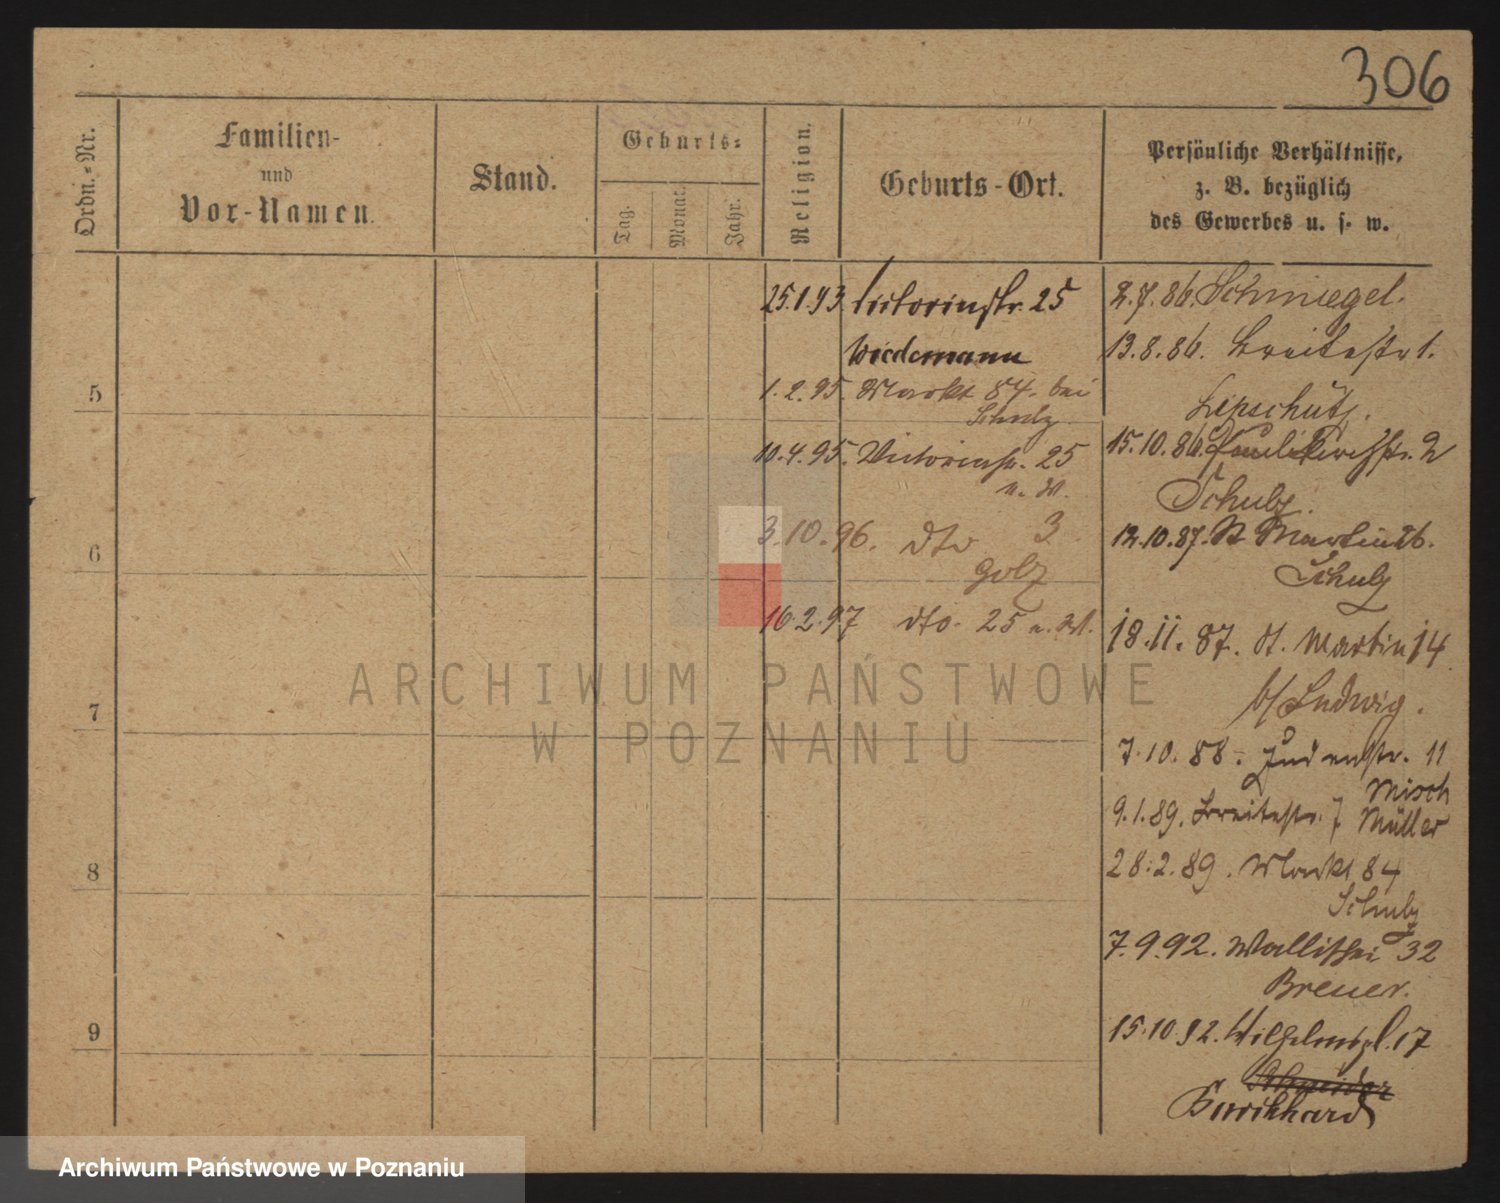 306
Ordn.-Nr.
Familien-
und
Vor-Namen.
Stand.
Geburts-
Tag.
Monat.
Jahr.
Religion.
Geburts-Ort.
Persönliche Verhältnisse,
z. B. bezüglich
des Gewerbes u. s. w.
5
6
7
8
9
25.1.93 Victoriastr. 25
Wiedemann
1.2.95. Markt 84. bei
Schulz
10.4.95. Victoriastr. 25
b. W.
3.10.96. dto 3
Golz
16.2.97 dto. 25 b. W.
2.7.86. Schmiegel.
13.8.86. Breitestr 1.
Lipschütz.
15.10.86. Paulikirchstr. 2
Schulz.
12.10.87. St Martin 26.
Schulz
18.11.87. St. Martin 14
b/ Ludwig.
7.10.88. Judenstr. 11
Misch
9.1.89. Breitestr. 7 Müller
28.2.89. Markt 84
Schulz
7.9.92. Wallischei 32
Breuer.
15.10.92. Wilhelmspl. 17
Schneider
Burikhard
ARCHIWUM PAŃSTWOWE
W POZNANIU
Archiwum Państwowe w Poznaniu